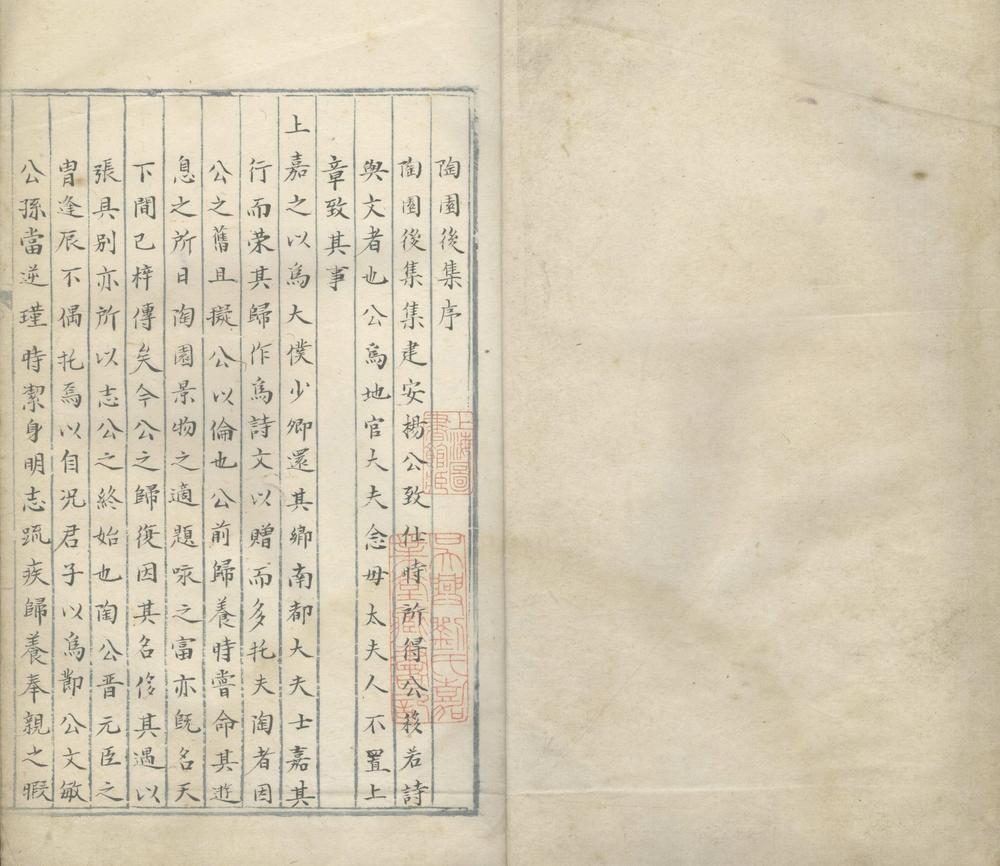 陶園後集序
陶園後集集建安楊公致仕時所得公移若詩
與文者也公爲地官大夫念毋太夫人不置上
章致其事
上嘉之以爲大僕少卿還其鄉南都大夫士嘉其
行而荣其歸作爲詩文以贈而多托夫陶者因
公之舊且擬公以倫也公前歸養時嘗命其遊
息之所日陶園景物之適題咏之富亦旣名天
下間已梓傳矣今公之歸復因其名侈其遇以
張具別亦所以志公之終始也陶公晋元臣之
胄逢辰不偶托焉以自况君子以爲節公文敏
公孫當逆瑾時潔身明志䟽疾歸養奉親之暇
上海圖
書館藏
吴興劉氏嘉
業堂藏書記